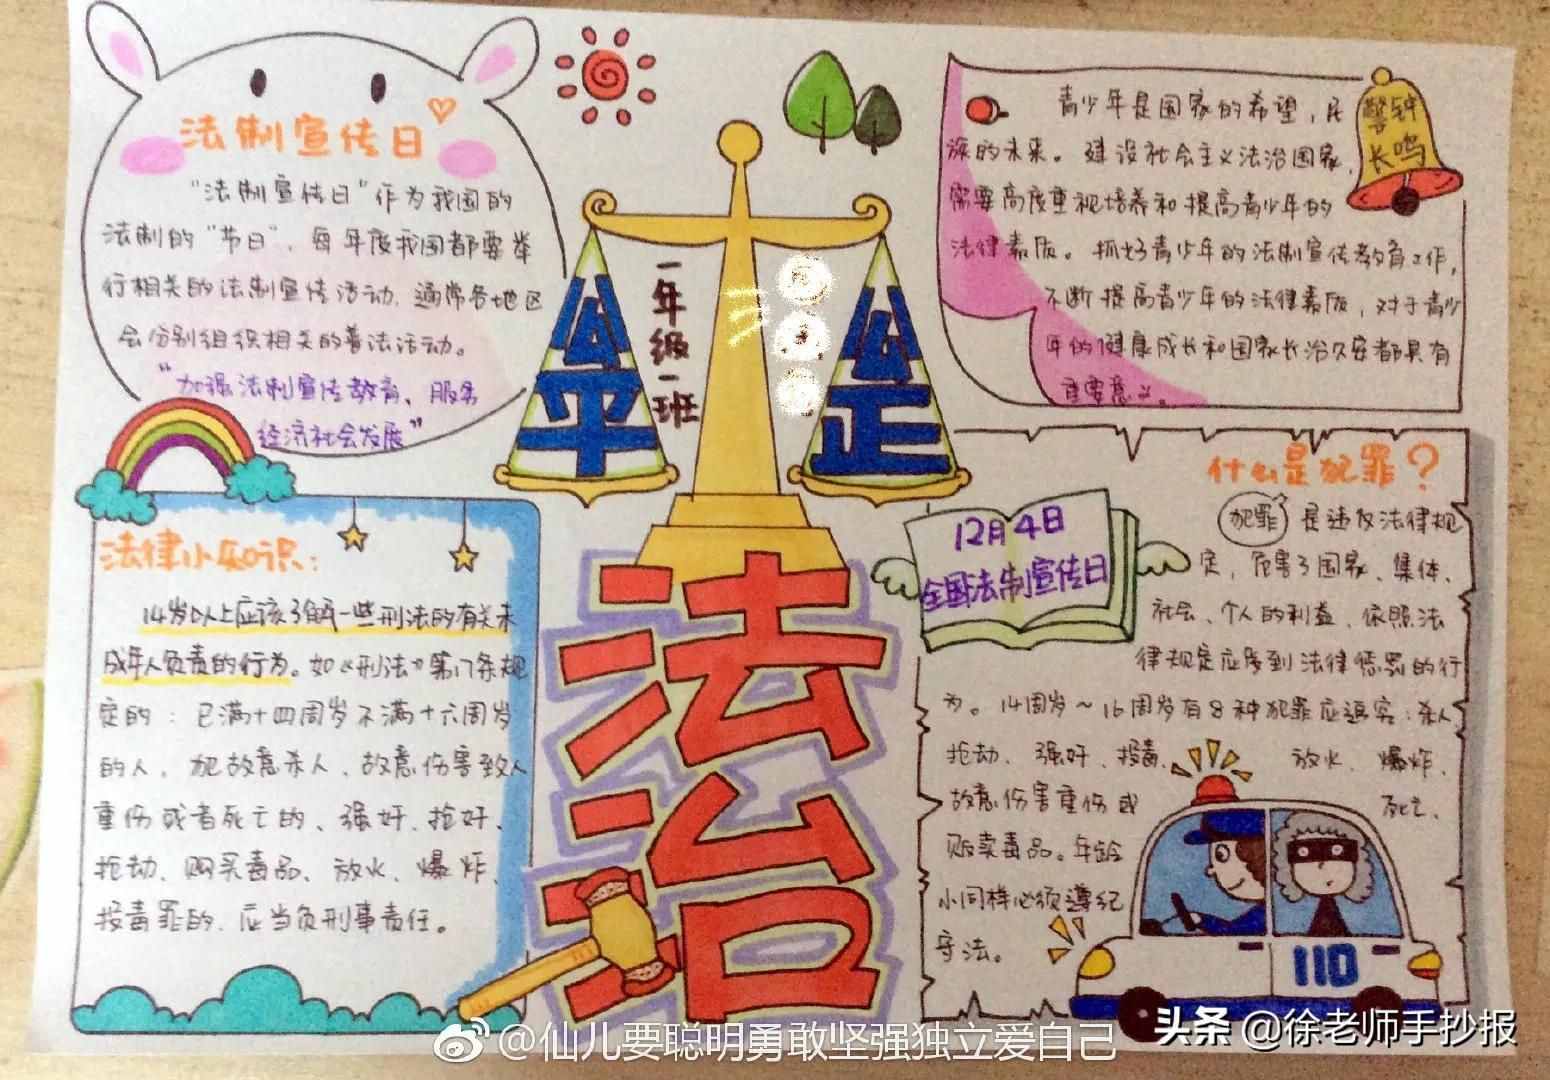 法制宣传日
“法制宣传日”作为我国的
法制的“节日”，每年度我国都要举
行相关的法制宣传活动，通常各地区
会分别组织相关的普法活动。
“加强法制宣传教育、服务
经济社会发展”
法律小知识：
14岁以上应该了解一些刑法的有关未
成年人负责的行为。如《刑法》第17条规
定的：已满十四周岁不满十六周岁
的人，犯故意杀人、故意伤害致人
重伤或者死亡的、强奸、抢奸、
抢劫、购买毒品、放火、爆炸、
投毒罪的，应当负刑事责任。
公平
一年级一班
公正
法治
警钟
长鸣
青少年是国家的希望，民
族的未来。建设社会主义法治国家，
需要高度重视培养和提高青少年的
法律素质。抓好青少年的法制宣传教育工作，
不断提高青少年的法律素质，对于青少
年的健康成长和国家长治久安都具有
重要意义。
12月4日
全国法制宣传日
什么是犯罪？
犯罪是违反法律规
定，危害了国家、集体、
社会、个人的利益、依照法
律规定应受到法律惩罚的行
为。14周岁～16周岁有8种犯罪应追究：杀人、
抢劫、强奸、投毒、放火、爆炸、
故意伤害重伤或死亡、
贩卖毒品。年龄
小同样必须遵纪
守法。
110
@仙儿要聪明勇敢坚强独立爱自己
头条@徐老师手抄报